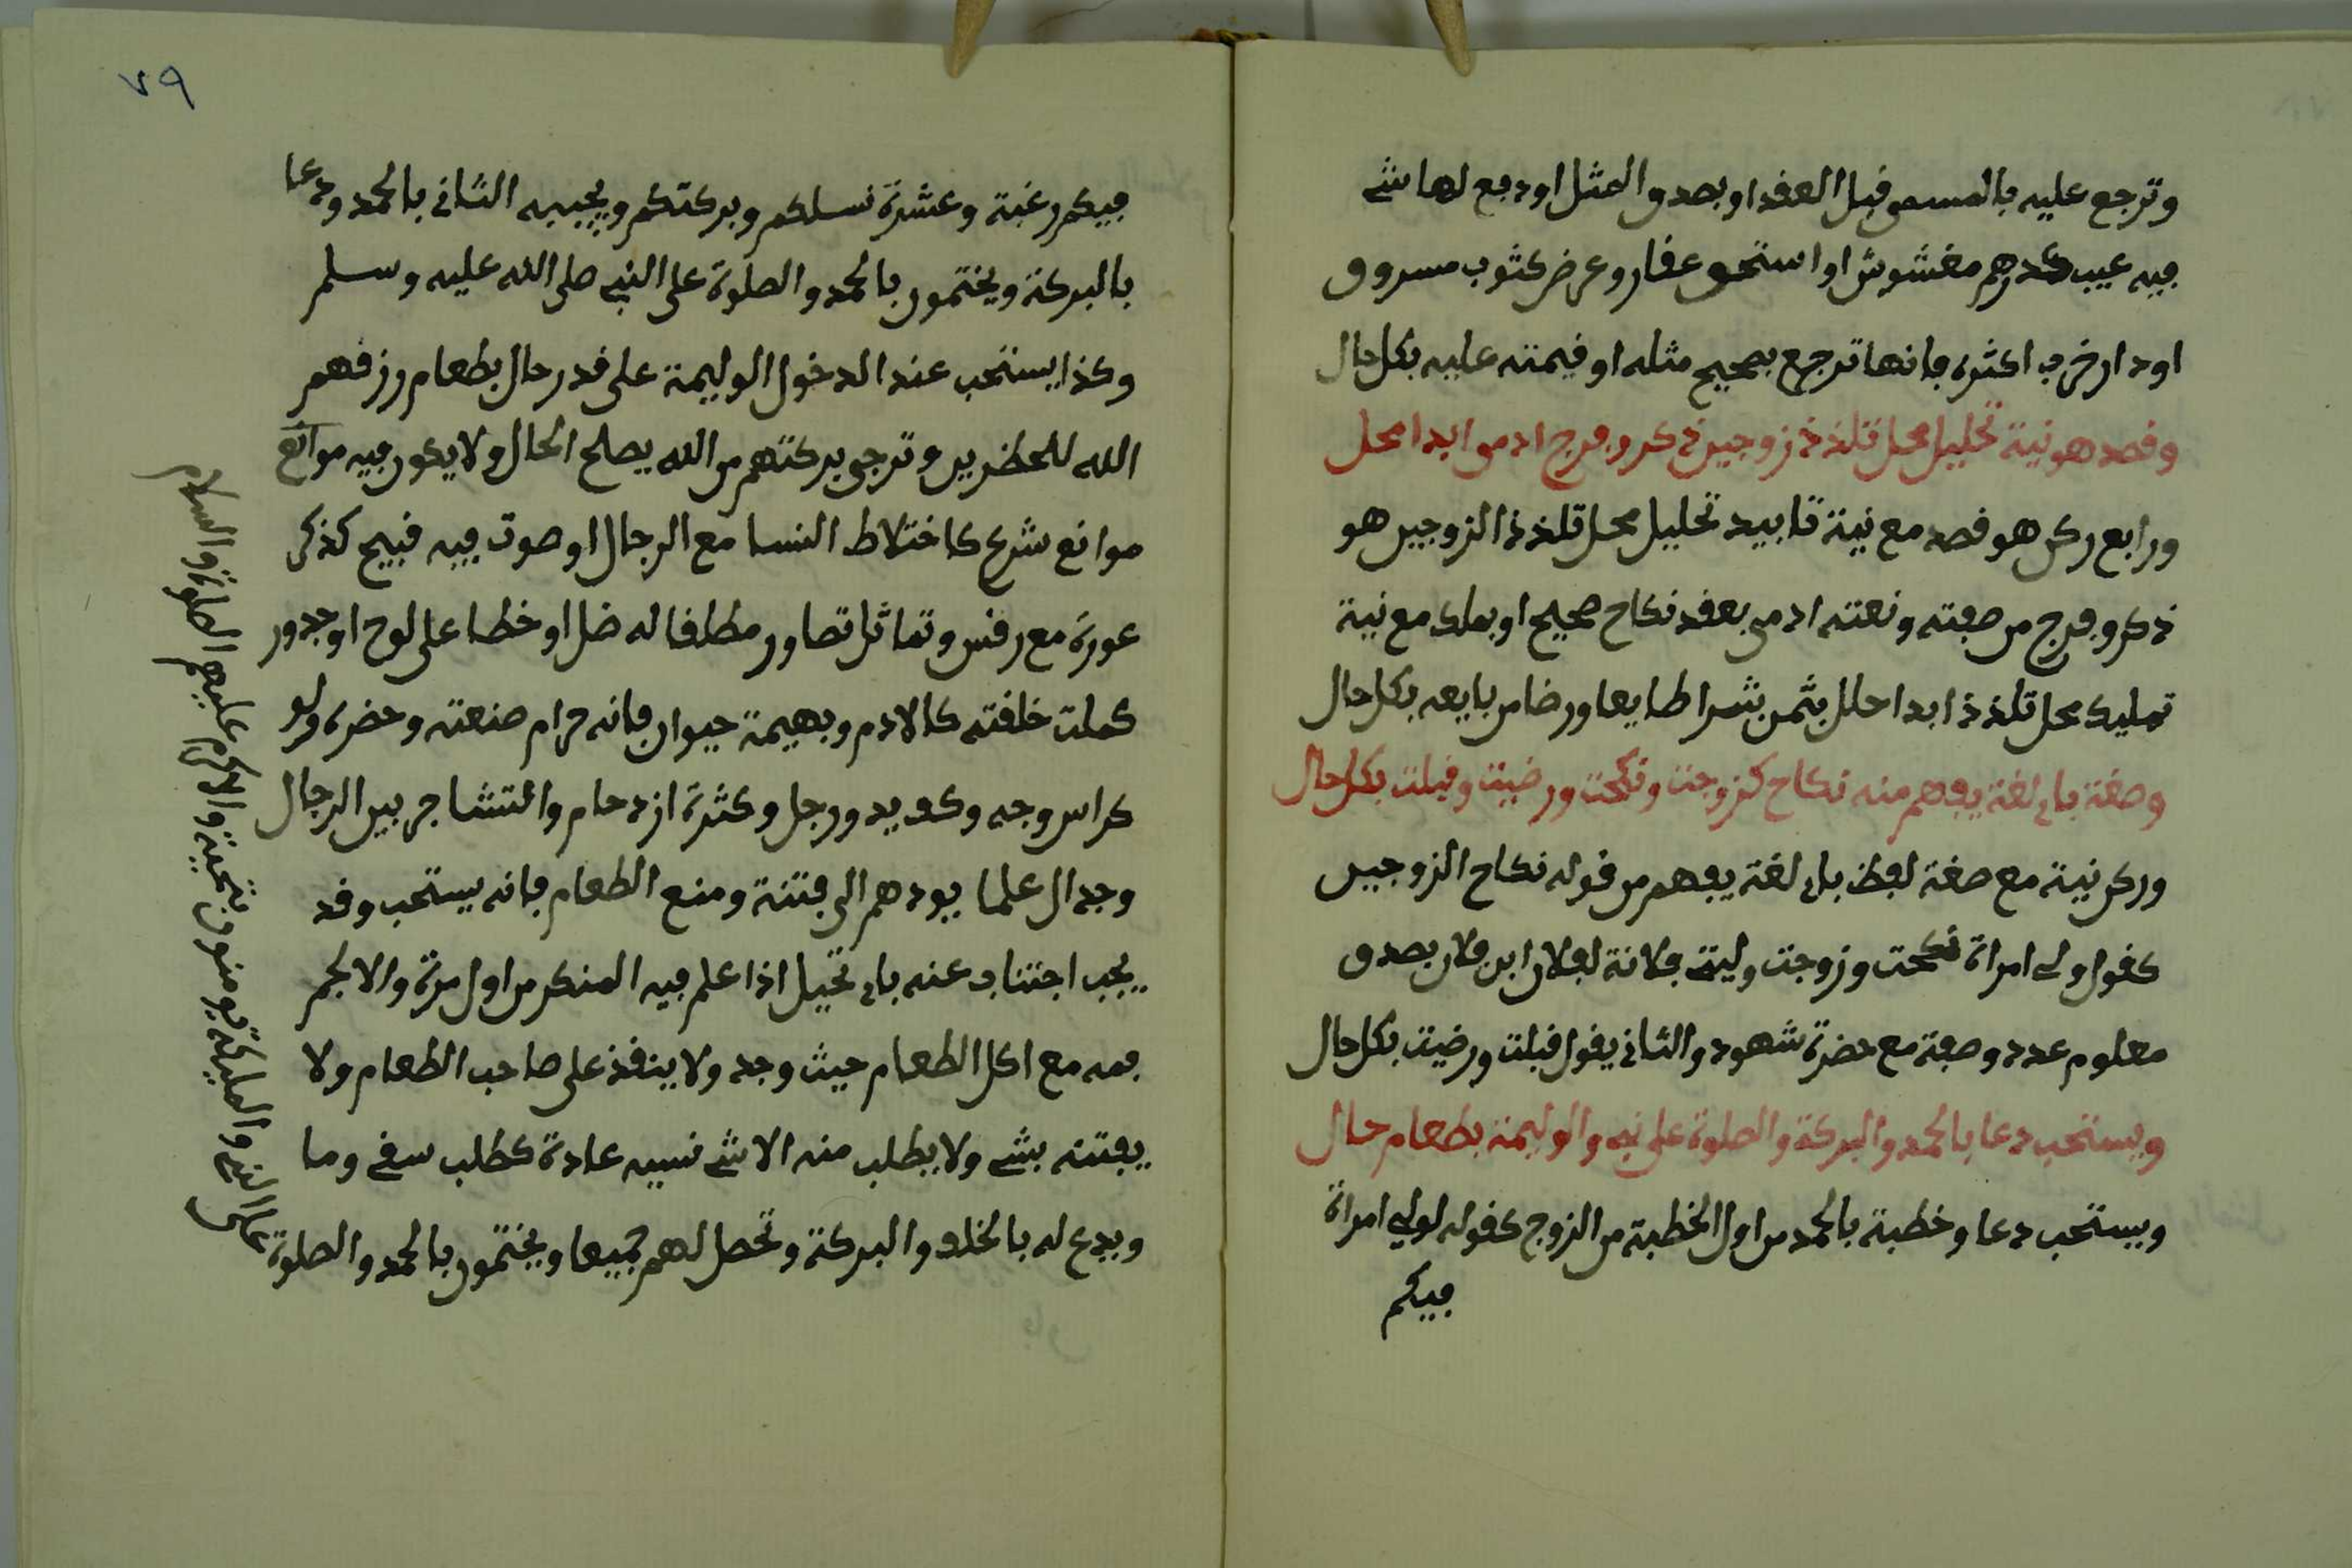 وترجع عليه بالمسمى قبل العقد او بصدق المثل او دفع لها شے
فيه عيب كدرهم مغشوش او استحق عقار وعرض كثوب مسروق
او دار خرب اكثره فانها ترجع بصحيح مثله او قيمته عليه بكل حال
وقصد هو نية تحليل محل تلذذ زوجين ذكر وفرج ادمى ابدا محل
ورابع ركن هو قصد مع نية تابيد تحليل محل تلذذ الزوجين هو
ذكر وفرج من صفته ونعته ادمى بعقد نكاح صحيح او بملك مع نية
تمليك محل تلذذ ابدا حلل بثمن بشرا طايعا ورضا من بايعه بكل حال
وصغة باى لغة يفهم منه نكاح كزوجت ونكحت ورضيت وقبلت بكل حال
وركن نية مع صغة لفظ باى لغة يفهم من قوله نكاح الزوجين
كقول ولى امراة نكحت وزوجت وليتے فلانة لفلان ابن فلان بصدق
معلوم عدد وصفة مع حضرة شهود والثانى يقول قبلت ورضيت بكل حال
ويستحب دعا بالحمد والبركة والصلوة على نبے والوليمة بطعام حال
ويستحب دعا وخطبة بالحمد من اول الخطبة من الزوج كقوله لولى امراة
فيكم
٧٩
فيكم رغبة وعشرة نسلكم وبركتكم ويجيبه الثانى بالحمد ودعا
بالبركة ويختمون بالحمد والصلوة على النبے صلى الله عليه وسلم
وكذا يستحب عند الدخول الوليمة على قدر حال بطعام رزقهم
الله للحضرين وترجى بركتهم من الله يصلح الحال ولا يكون فيه موانع
موانع شرع كاختلاط النسا مع الرجال او صوت فيه قبيح كذكر
عورة مع رقص وتماثل تصاور مطلقا له ضل او خطا على لوح او جدور
كملت خلقته كالادم وبهيمة حيوان فانه حرام صنعته وحضره ولو
كراس وجه وكف يد ورجل وكثرة ازدحام والتشاجر بين الرجال
وجدال علما يودهم الى فتنة ومنع الطعام فانه يستحب وقد
يجب اجتناب عنه باى تحيل اذا علم فيه المنكر من اول مرة والا لجم
فمه مع اكل الطعام حيث وجد ولا ينفذ على صاحب الطعام ولا
يفتنه بشے ولا يطلب منه الا شے نسيه عادة كطلب سقے وما
ويدع له بالخلف والبركة وتحصل لهم جميعا ويختمون بالحمد والصلوة
على النبے والمليكة يومنون بتحية والاكرام عليهم الصلوة والسلام